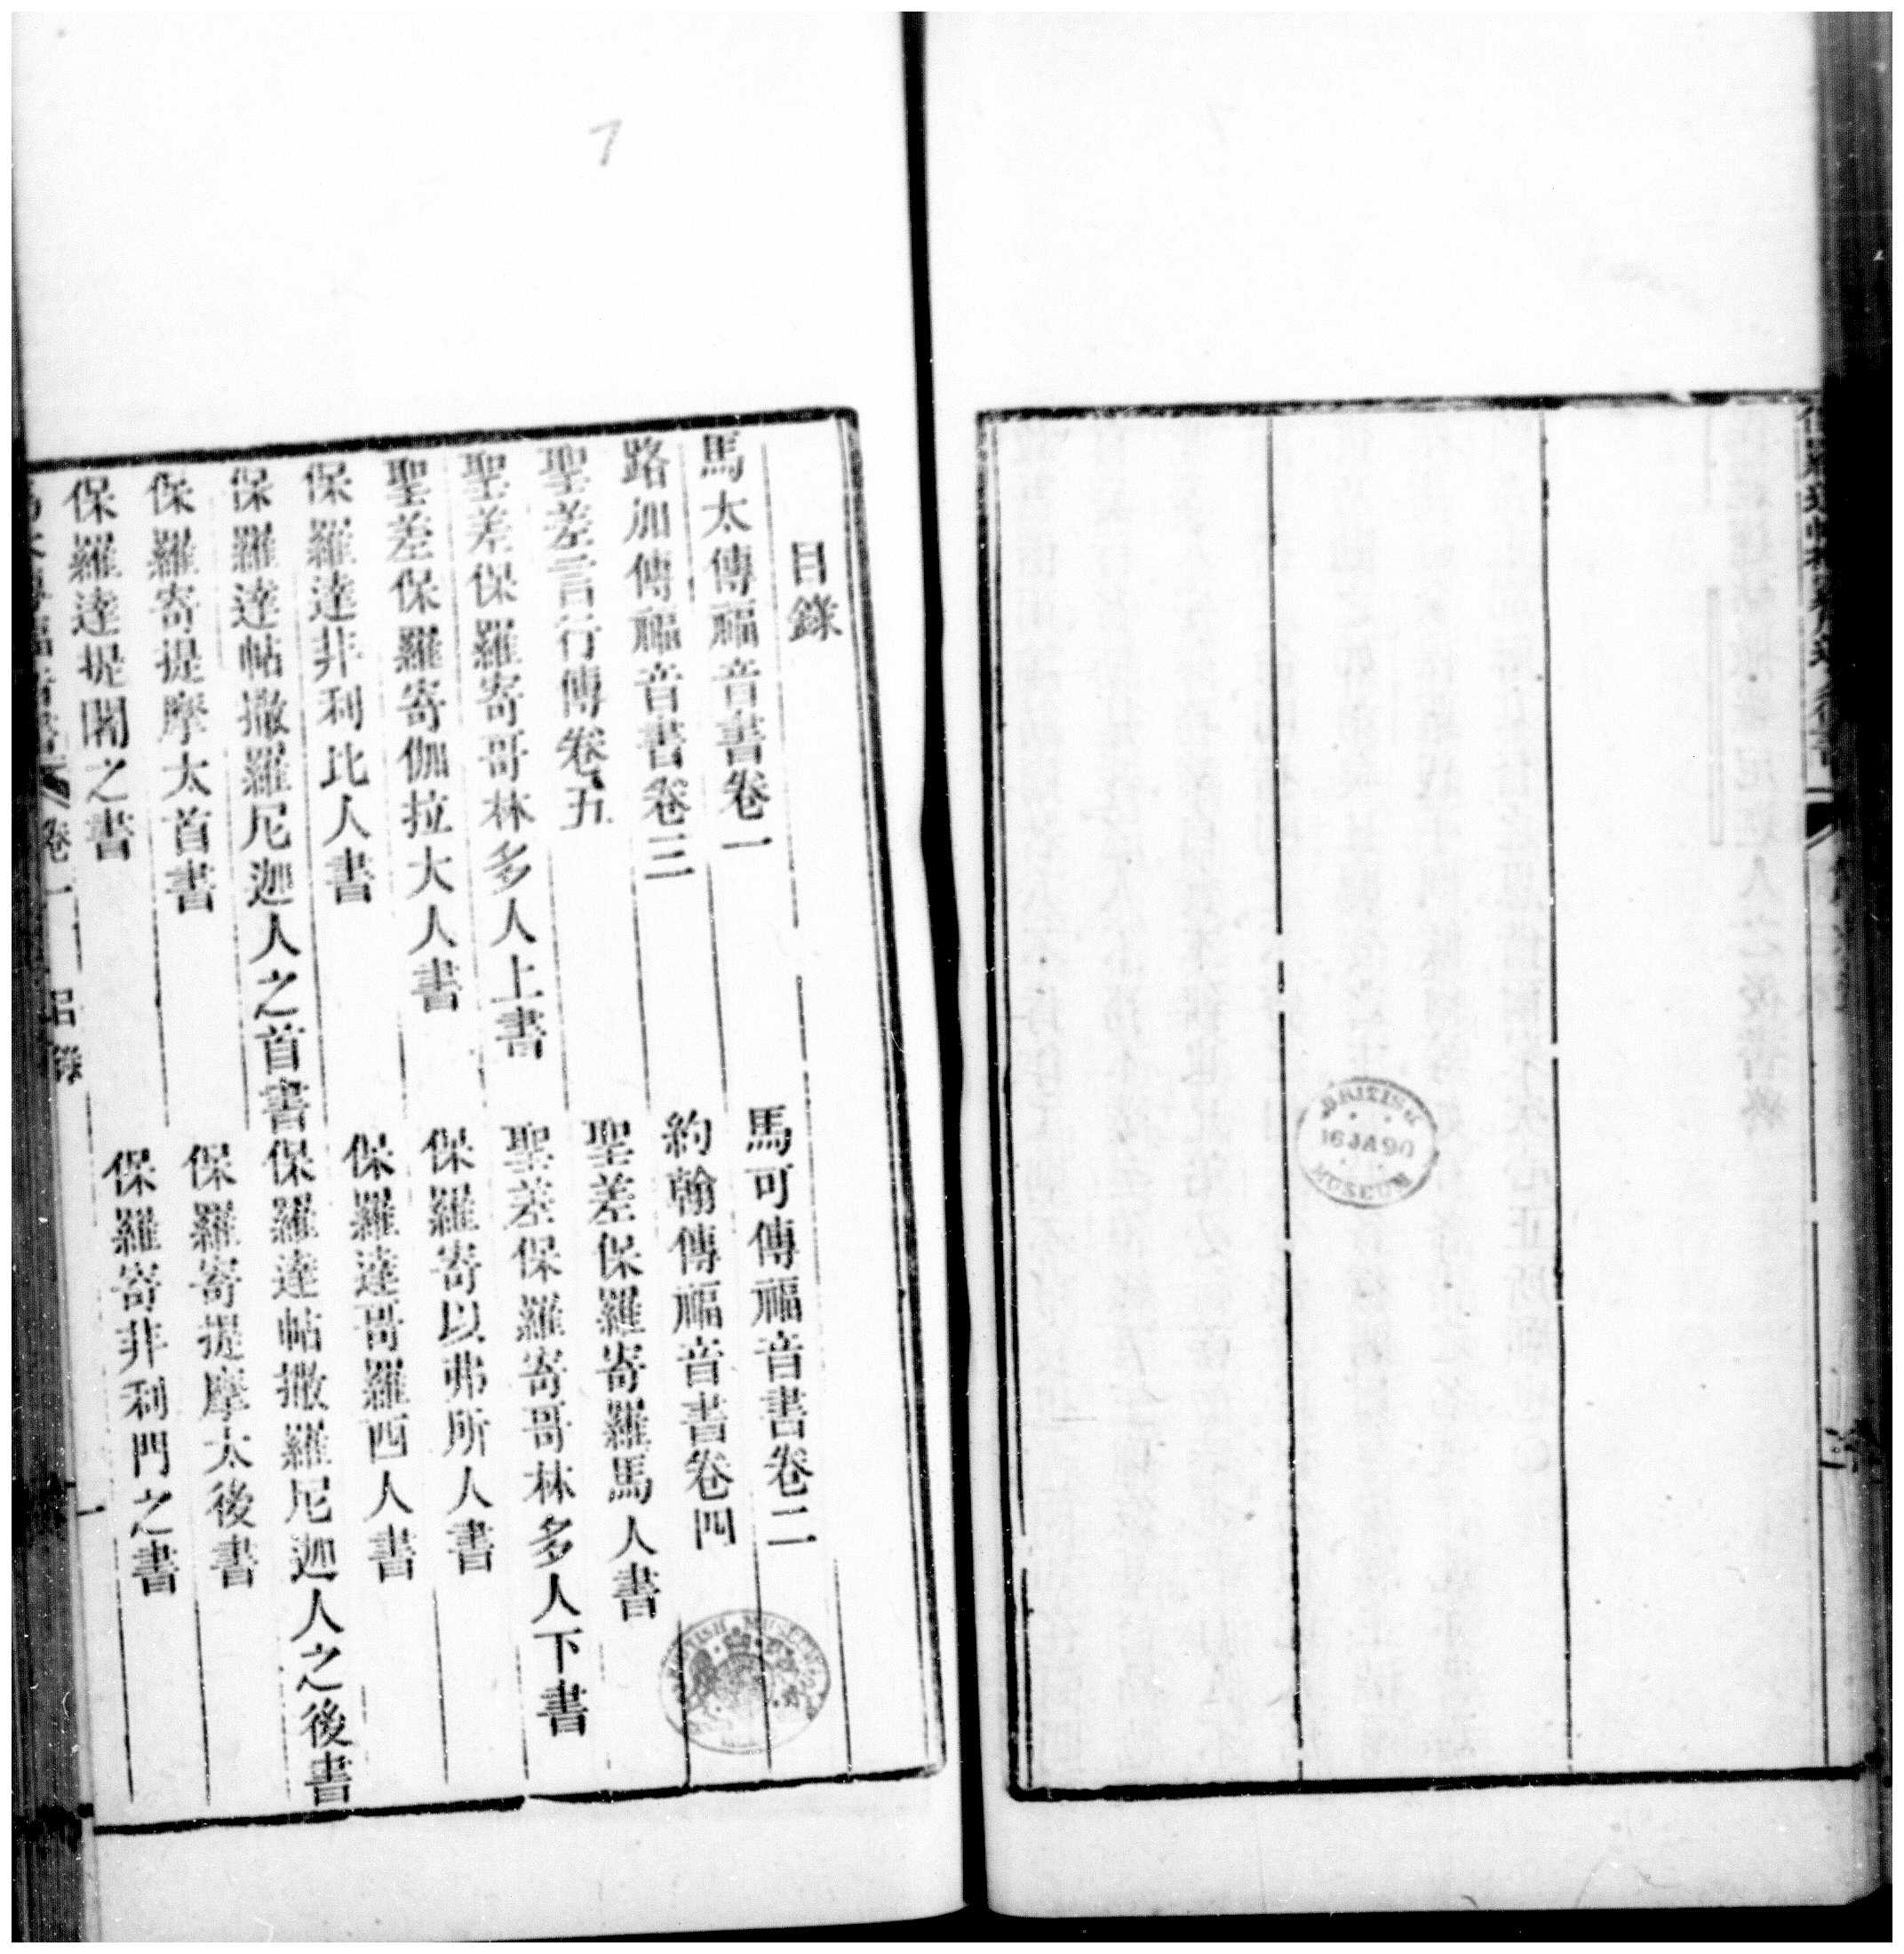 BRITISH
16 JA 90
MUSEUM
7
目錄
馬太傳福音書卷一
馬可傳福音書卷二
路加傳福音書卷三
約翰傳福音書卷四
聖差言行傳卷五
聖差保羅寄羅馬人書
聖差保羅寄哥林多人上書
聖差保羅寄哥林多人下書
聖差保羅寄伽拉大人書
保羅寄以弗所人書
保羅達非利比人書
保羅達哥羅西人書
保羅達帖撒羅尼迦人之首書
保羅達帖撒羅尼迦人之後書
保羅寄提摩太首書
保羅寄提摩太後書
保羅達提鬧之書
保羅寄非利門之書
卷一
目錄
一
BRITISH MUSEUM